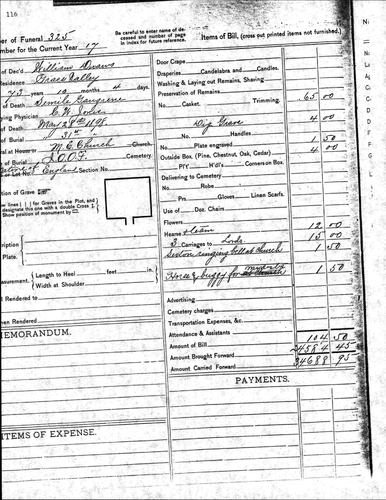 116
er of Funeral 325
umber for the Current Year 17
Be carefully to enter name of deceased and number of page in index for future reference.
of Dec'd William Queens
Residence Grass Valley
73 years 10 months 4 days
of Death Senile Gangrene
ying Physician C. W.
of Death May 28th 1898
of Burial " 31st "
eral at House or M. E. Church Church.
of Burial I.O.O.F. Cemetery.
Native of England Section No.
osition of Grave
ze lines | | for Graves in the Plot, and designate this one with a double Cross
Show position of monument by
escription
Plate.
easurement. Length to Heel feet in.
Width at Shoulder
t Rendered to
hen Rendered
MEMORANDUM.
ITEMS OF EXPENSE.
Items of Bill, (cross out printed items not furnished.)
Door Crape
Draperies Candelabra and Candles.
Washing & Laying out Remains, Shaving
Preservation of Remains
No. Casket. Trimming. 65 00
Dig Grave 4 00
No. Handles
Plate engraved 1 50
Outside Box (Pine, Chestnut, Oak, Cedar) 4 00
P'lY H'dl's Corners on Box
Delivering to Cemetery
No. Robe
Prs. Gloves Linen Scarfs.
Use of Doz. Chairs
Flowers
Hearse & team 12 00
3 Carriages to 15 00
Sexton ringing bell at church 1 50
Horse & buggy for 1 50
Advertising
Cemetery charges
Transportation Expenses, &c.
Attendance & Assistants
Amount of Bill 104 50
Amount Brought Forward 34584 45
Amount Carried Forward 34688 95
PAYMENTS.